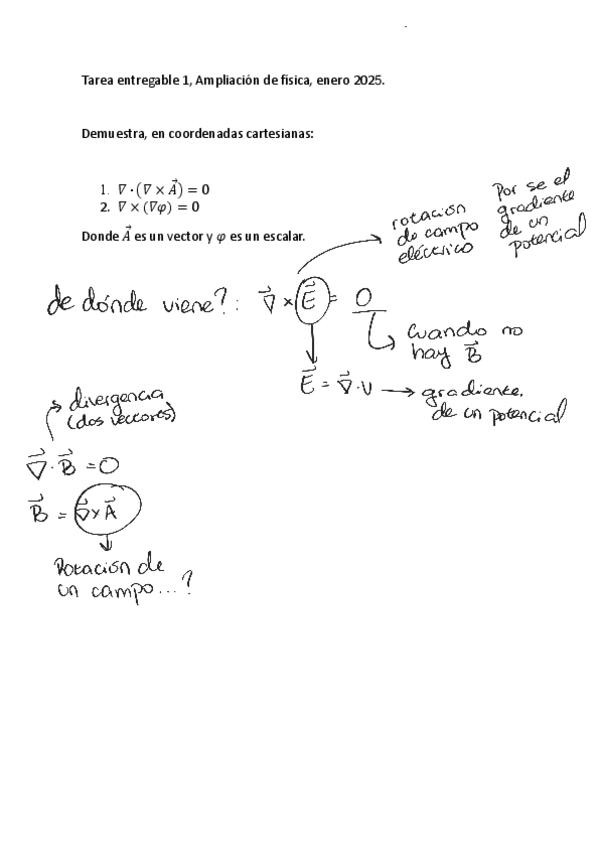 Tarea entregable 1, Ampliación de física, enero 2025.
Demuestra, en coordenadas cartesianas:
1. ∇ · (∇ × A⃗) = 0
2. ∇ × (∇φ) = 0
Donde A⃗ es un vector y φ es un escalar.
rotación
de campo
eléctrico
Por se el
gradiente
de un
potencial
de dónde viene?: ∇⃗ × E⃗ = 0
Cuando no
hay B⃗
E⃗ = ∇⃗ · V → gradiente.
de un potencial
divergencia
(dos vectores)
∇⃗ · B⃗ = 0
B⃗ = ∇⃗ × A⃗
Rotación de
un campo...?